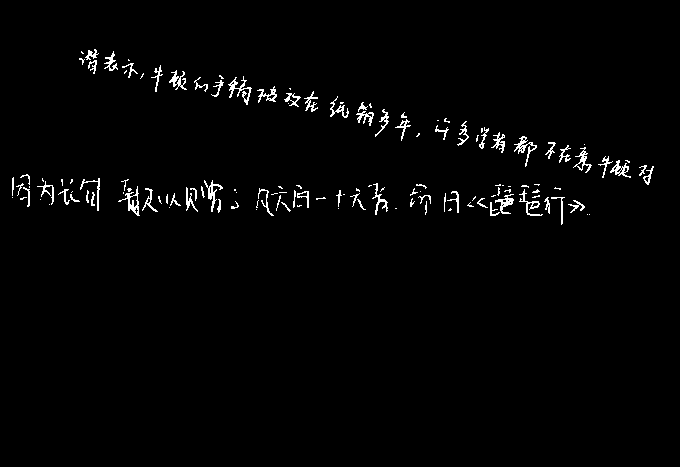 谱表示,牛顿的手稿被放在纸箱多年,许多学者都不在意牛顿对
因为长句 歌以赠之 凡六百一十六言. 命曰《琵琶行》.